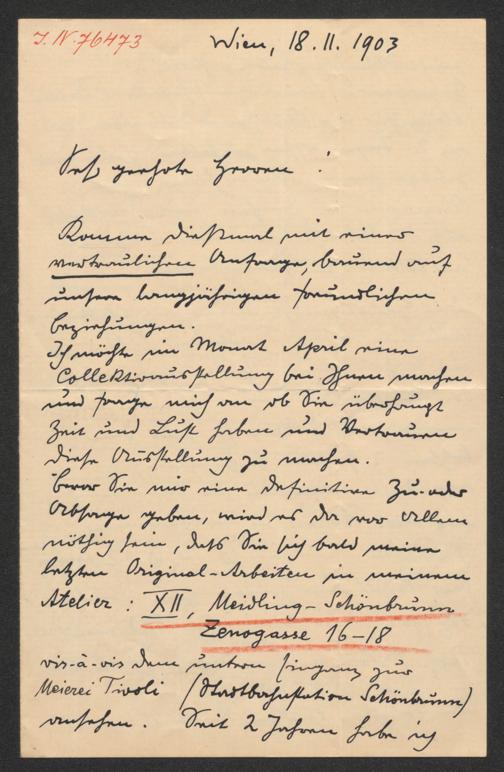 J. N. 76473
Wien, 18. 11. 1903
Sehr geehrte Herren !
Komme dießmal mit einer
vertraulichen Anfrage, bauend auf
unsere langjährigen freundlichen
Beziehungen.
Ich möchte im Monat April eine
Collektivausstellung bei Ihnen machen
und frage mich an ob Sie überhaupt
Zeit und Lust haben und Vertrauen
diese Ausstellung zu machen.
Bevor Sie mir eine definitive Zu- oder
Absage geben, wird es da vor Allem
nöthig sein, daß Sie sich bald meine
letzten Original-Arbeiten in meinem
Atelier : XII, Meidling-Schönbrunn
Zenogasse 16–18
vis-à-vis dem untern Eingang zur
Meierei Tivoli (Stadtbahnstation Schönbrunn)
ansehen. Seit 2 Jahren habe ich